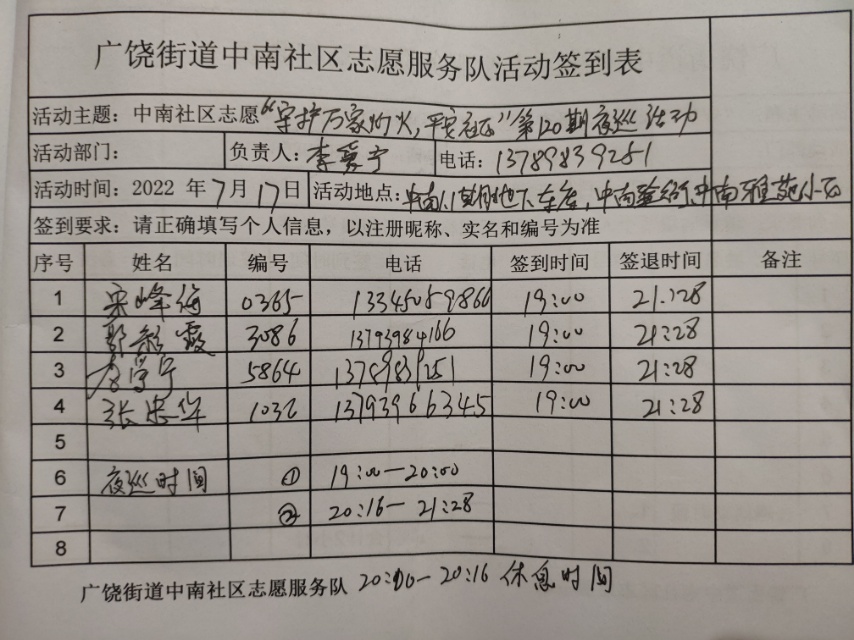 广饶街道中南社区志愿服务队活动签到表
活动主题：中南社区志愿“守护万家灯火，平安社区”第120期夜巡活动
活动部门： 负责人：李爱宁 电话：13789839251
活动时间：2022 年7月17日 活动地点：中南 期地下车库，中南 中南雅苑小区
签到要求：请正确填写个人信息，以注册昵称、实名和编号为准
序号 姓名 编号 电话 签到时间 签退时间 备注
1 宋峰梅 0365 13345059866 19:00 21:28
2 郭彩霞 3086 13793984166 19:00 21:28
3 宁 5864 13789839251 19:00 21:28
4 张忠华 1032 13793966345 19:00 21:28
5
6 夜巡时间 ① 19:00—20:00
7 ② 20:16—21:28
8
广饶街道中南社区志愿服务队 20:00—20:16 休息时间